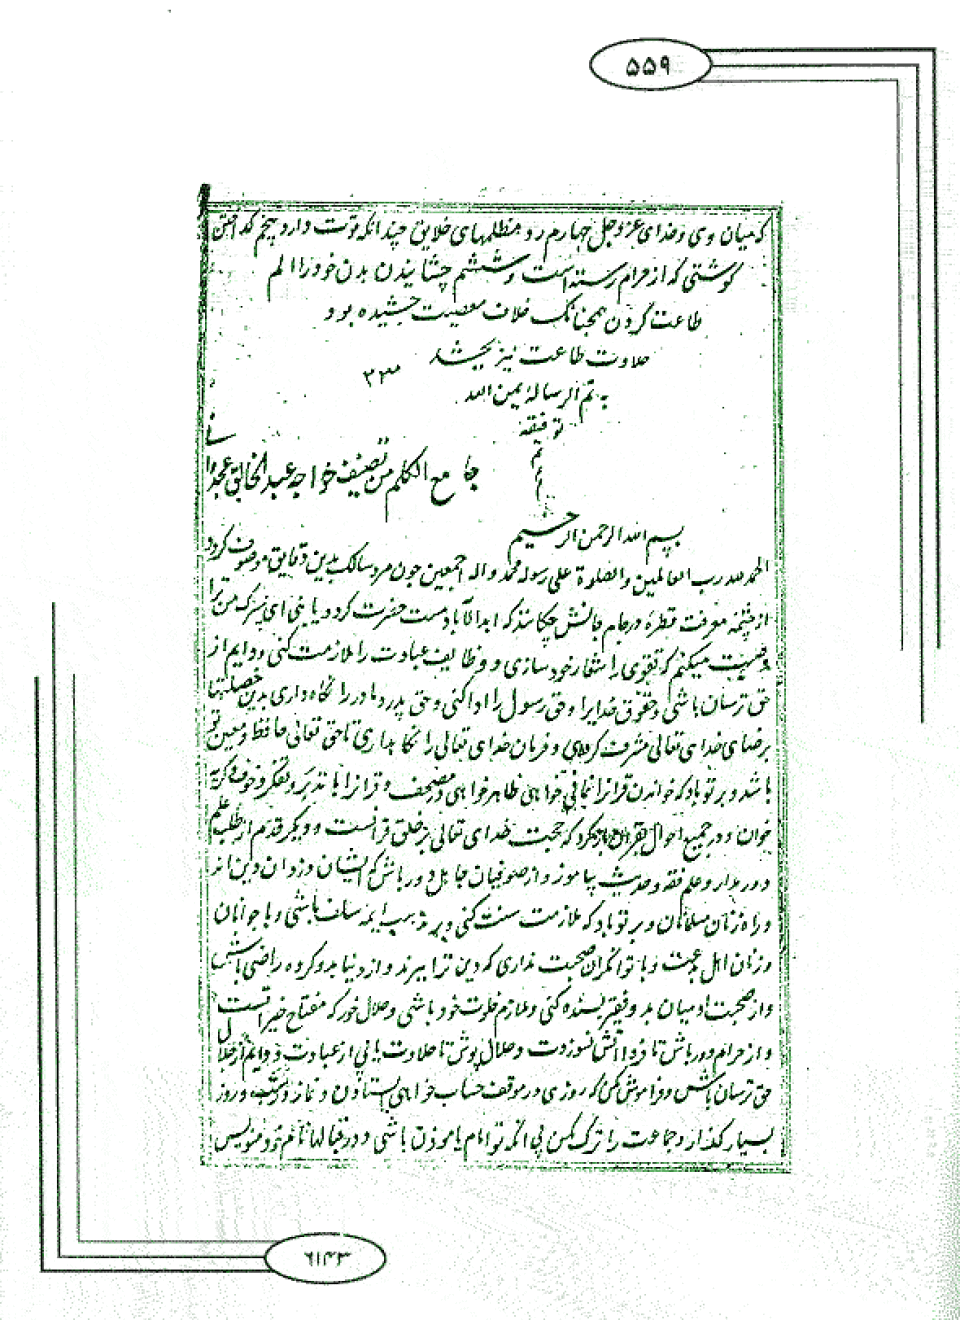 ۵۵۹
که میان وی و خدای عزوجل چهارم رد مظلمهای خلایق چندانکه توست دارد پنجم کداختن
کوشتی که از حرام رسته است و ششم چشانیدن بدن خود را الم
طاعت کردن همچنانک خلاف معصیت چشیده بود
حلاوت طاعت نیز بچشد
تم الرسالة بمن الله
توفیقه
تم
م
جامع الکلم من تصنیف خواجه عبدالخالق غجدوانی
بسم الله الرحمن الرحیم
الحمد لله رب العالمین والصلوة علی رسوله محمد و اله اجمعین چون مرد سالک بدین دقایق موصوف کردد
از چشمه معرفت قطره در جام جانش چکانند که ابد الاباد مست حضرت کردد یا بنی ای پسرک من ترا
وصیت میکنم که تقوی را شعار خود سازی و وظایف عبادت را ملازمت کنی و دایم از
حق ترسان باشی و حقوق خدایرا و حق رسول را ادا کنی و حق پدر و مادر را نگاه داری بدین خصلتها
برضای خدای تعالی مشرف کردی و فرمان خدای تعالی را نگاهداری تا حق تعالی حافظ و معین تو
باشد و بر تو باد که خواندن قرانرا خواهی ظاهر خواهی در مصحف و قرانرا با تدبر و تفکر و خوف و کریه
خوان و در جمیع احوال که حجت خدای تعالی بر خلق قرانست و دیکر قدم از طلب علم
دور مدار و علم فقه و حدیث بیاموز و از صوفیان جاهل دور باش که ایشان دزدان دین اند
و راه زنان مسلمانان و بر تو باد که ملازمت سنت کنی و بر مذهب ایمه سلف باشی و با جوانان
و زنان اهل بدعت و با توانکران صحبت نداری که دین ترا ببرند و از دنیا بدو کرده راضی باش
و از صحبت ادمیان بدو فقیر بسنده کنی و ملازم خلوت خود باشی و حلال خور که مفتاح خیر است
و از حرام دور باش تا فردا آتش نسوزدت و حلال پوش تا حلاوت یابی از عبادت و دایم از جلال
حق ترسان باش و فراموش مکن که روزی در موقف حساب خواهی ایستادن و نماز در شب و روز
بسیار کذار و جماعت را ترک مکن بی انکه تو امام یا موذن باشی و در قبالها نام خود منویس
۶۱۴۳